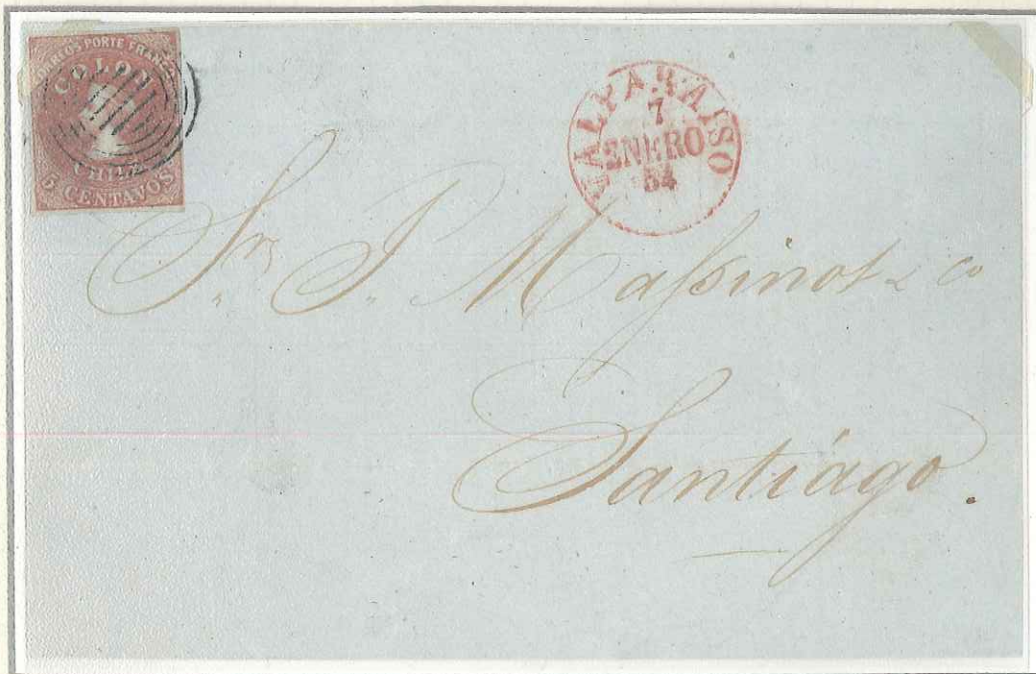 CORREOS PORTE FRANCO
COLON
CHILE
5 CENTAVOS
VALPARAISO
7
ENERO
54
Srs. P. Maſsinot & Co
Santiágo.